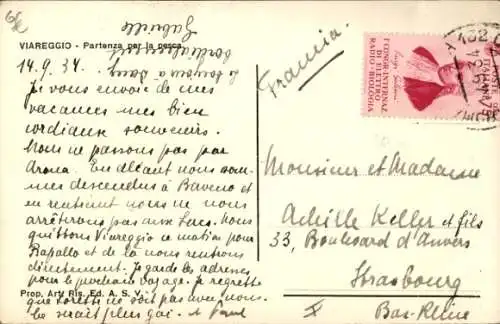 VIAREGGIO - Partenza per la pesca
14.9.34.
Je vous envoie de mes
vacances mes bien
cordiaux souvenirs.
Nous ne passons pas par
Arona. En allant nous som-
mes descendus à Baveno et
en rentrant nous ne nous
arrêterons pas aux Lacs. Nous
quittons Viareggio ce matin pour
Rapallo et de là nous rentrons
directement. Je garde les adresses
pour le prochain voyage. Je regrette
que ne soit pas avec nous.
ce serait plus gai. et
cordialement
Gabrielle
Prop. Art. Ris. Ed. A. S. V.
Francia.
I CONGR. INTERNAZ.
DI ELETTRO
RADIO-BIOLOGIA
Monsieur et Madame
Achille Keller et fils
33, Boulevard d'Anvers
Strasbourg
Bas-Rhin